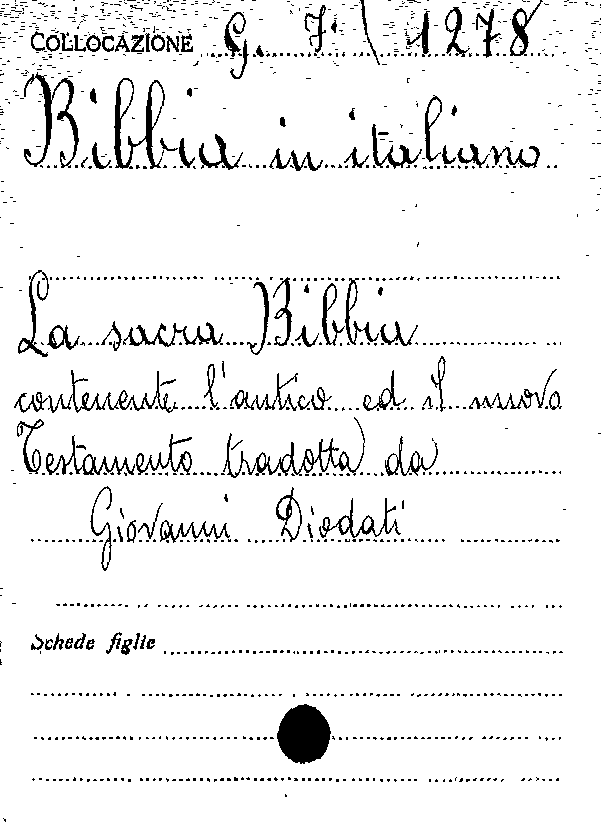 COLLOCAZIONE G. I. \ 1278
Bibbia in italiano
La sacra Bibbia
contenente l'antico ed il nuovo
Testamento tradotta da
Giovanni Diodati
Schede figlie